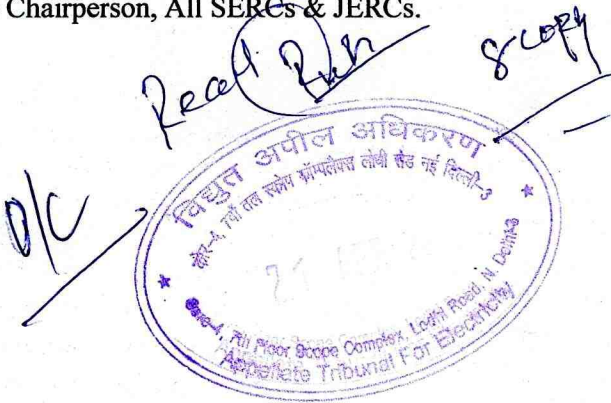 Chairperson, All SERCs & JERCs.
Recd
8 copy
O/C
विद्युत अपील अधिकरण
कोर-4, 7वाँ तल स्कोप कॉम्पलेक्स लोधी रोड नई दिल्ली-3
21
Core-4, 7th Floor Scope Complex, Lodhi Road, N. Delhi-3
Appellate Tribunal For Electricity